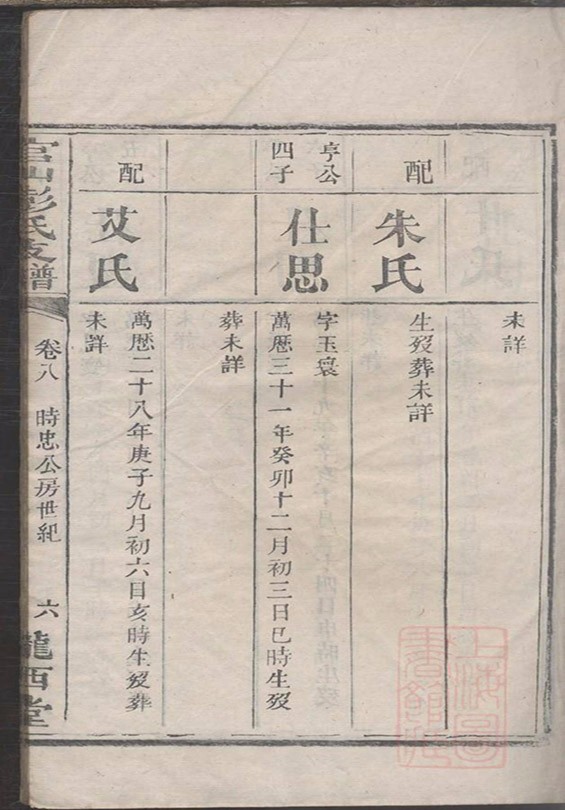 未詳
配
朱氏
生歿葬未詳
亨公
四子
仕思
字玉寰
萬歷三十一年癸卯十二月初三日巳時生歿
葬未詳
配
艾氏
萬歷二十八年庚子九月初六日亥時生歿葬
未詳
官山彭氏支譜
卷八
時忠公房世紀
六
隴西堂
上海圖書館藏